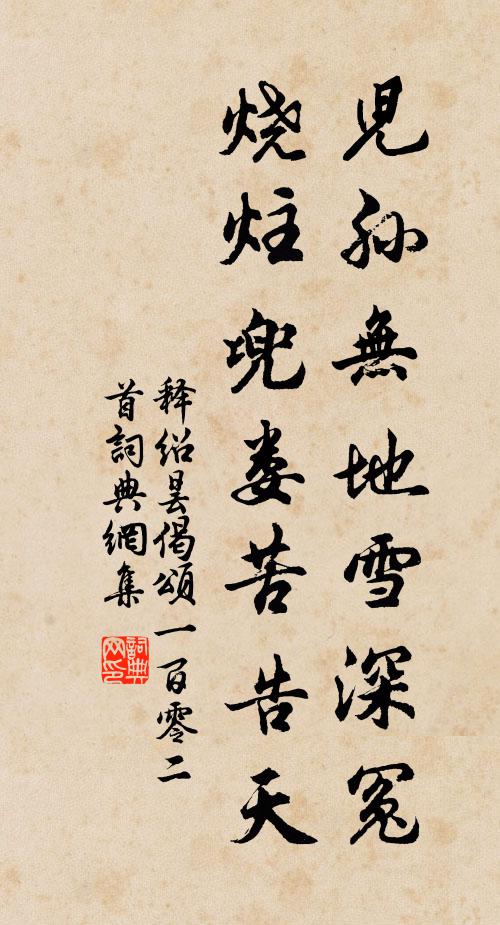 児孫無地雪深冤
烧炷兜娄苦告天
释绍昙偈頌一百零二
首詞典網集
詞典网印